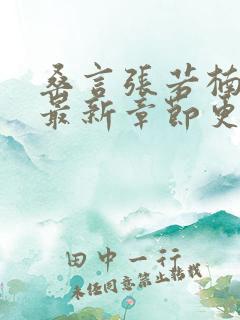 桑言張若楠
最新章節更
田中一行
未经同意禁止转载